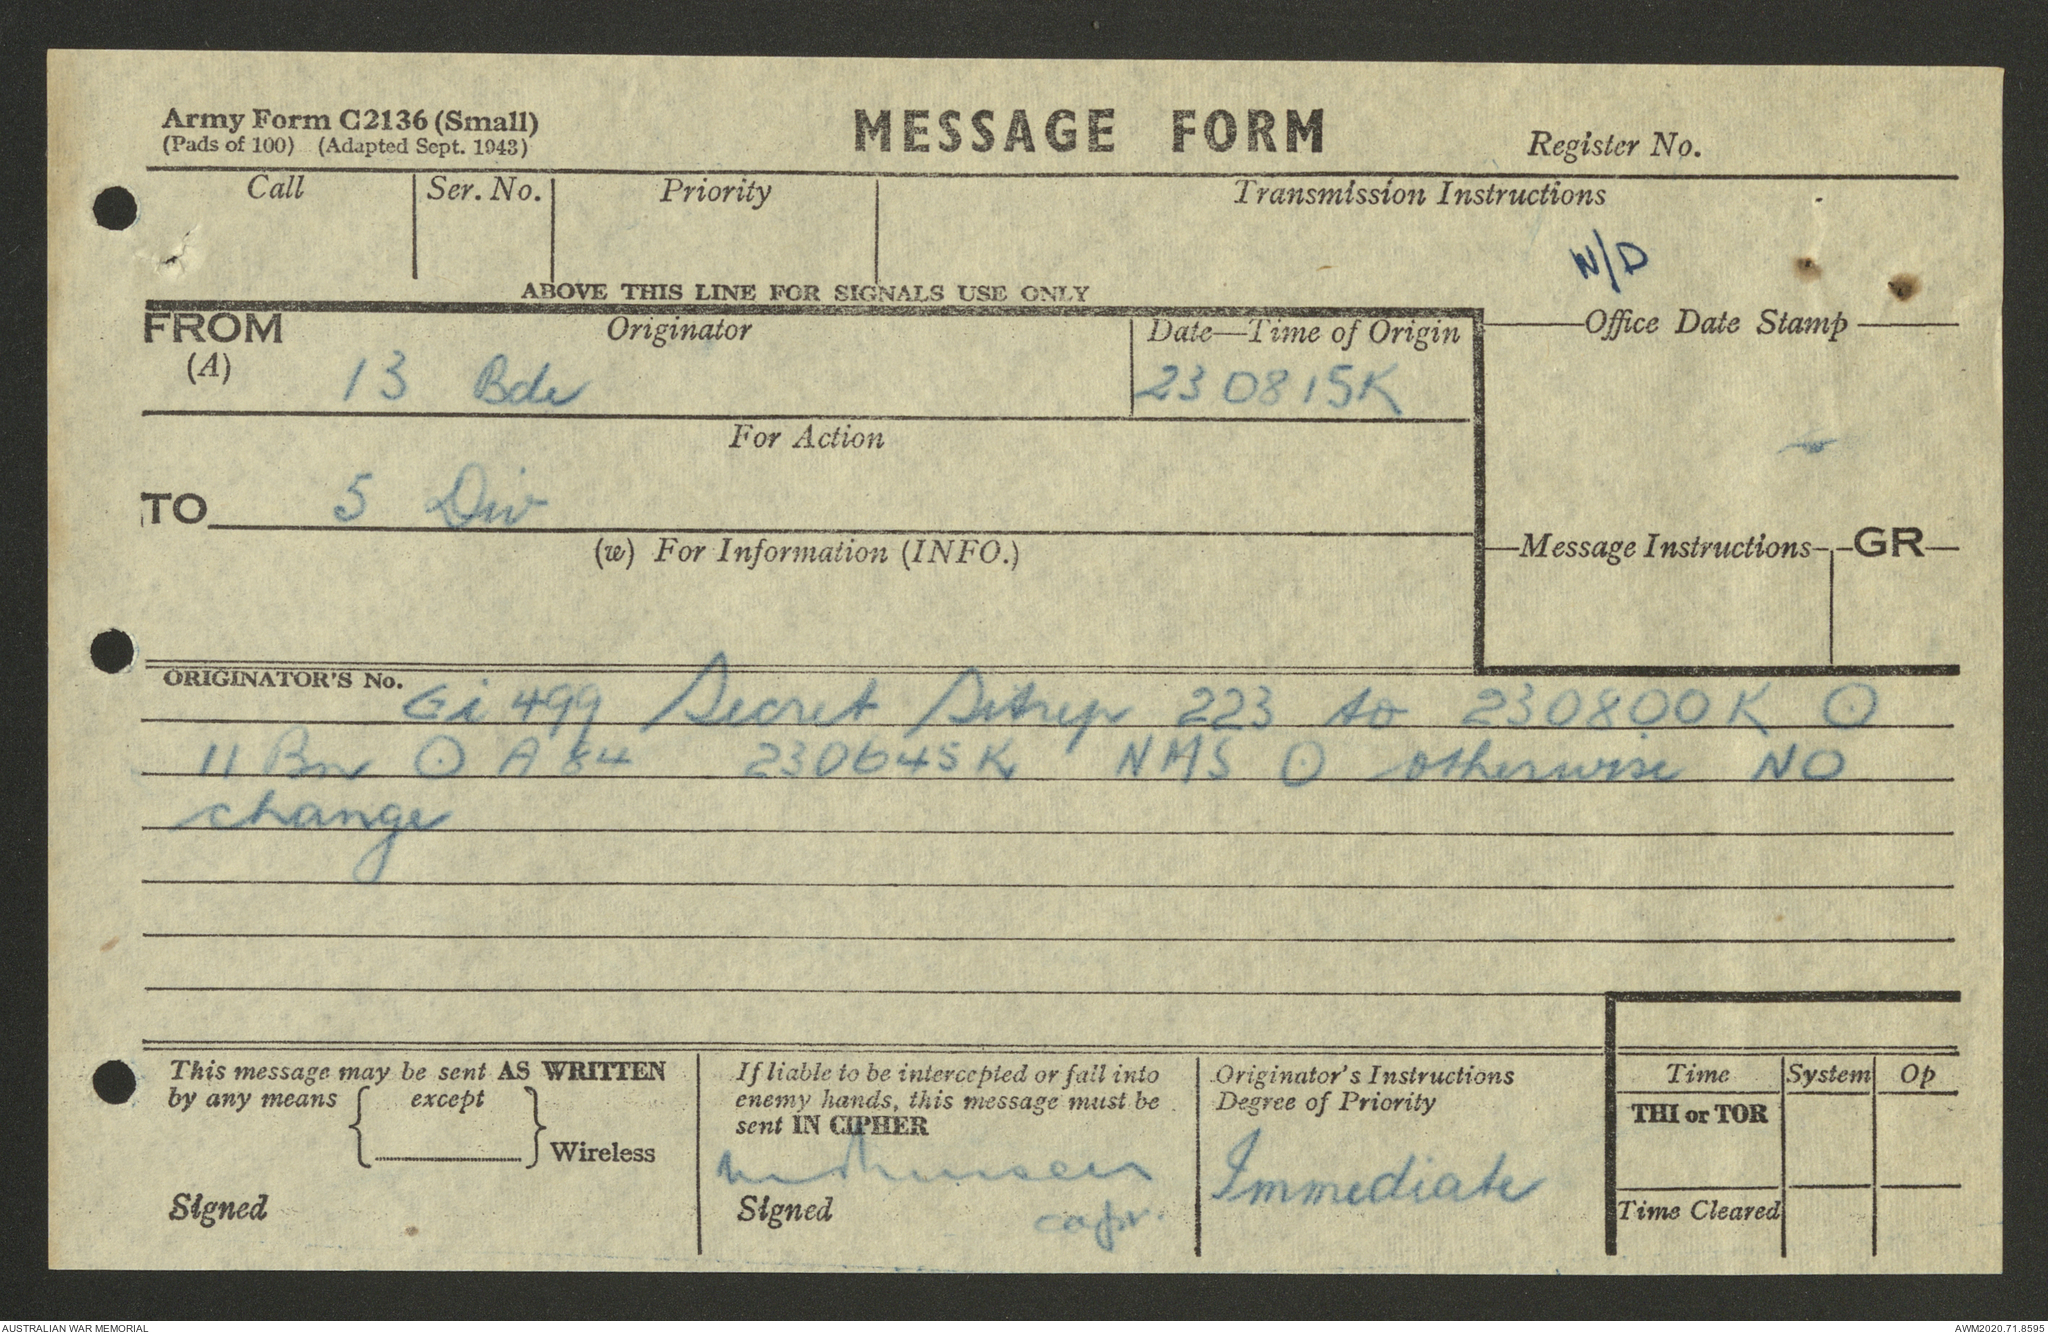 Army Form C2136 (Small)
(Pads of 100) (Adapted Sept. 1943)
MESSAGE FORM
Register No.
Call
Ser. No.
Priority
Transmission Instructions
W/D
ABOVE THIS LINE FOR SIGNALS USE ONLY
FROM
(A)
Originator
13 Bde
Date—Time of Origin
230815K
Office Date Stamp
For Action
TO
5 Div
(w) For Information (INFO.)
Message Instructions
GR
ORIGINATOR'S No.
Gi 499 Secret Sitrep 223 to 230800K ⊙
11 Bn ⊙ A 84 230645K NMS ⊙ otherwise NO
change
This message may be sent AS WRITTEN
by any means
except
Wireless
Signed
If liable to be intercepted or fall into
enemy hands, this message must be
sent IN CIPHER
Signed
capt.
Originator's Instructions
Degree of Priority
Immediate
Time
System
Op
THI or TOR
Time Cleared
AUSTRALIAN WAR MEMORIAL
AWM2020.71.8595